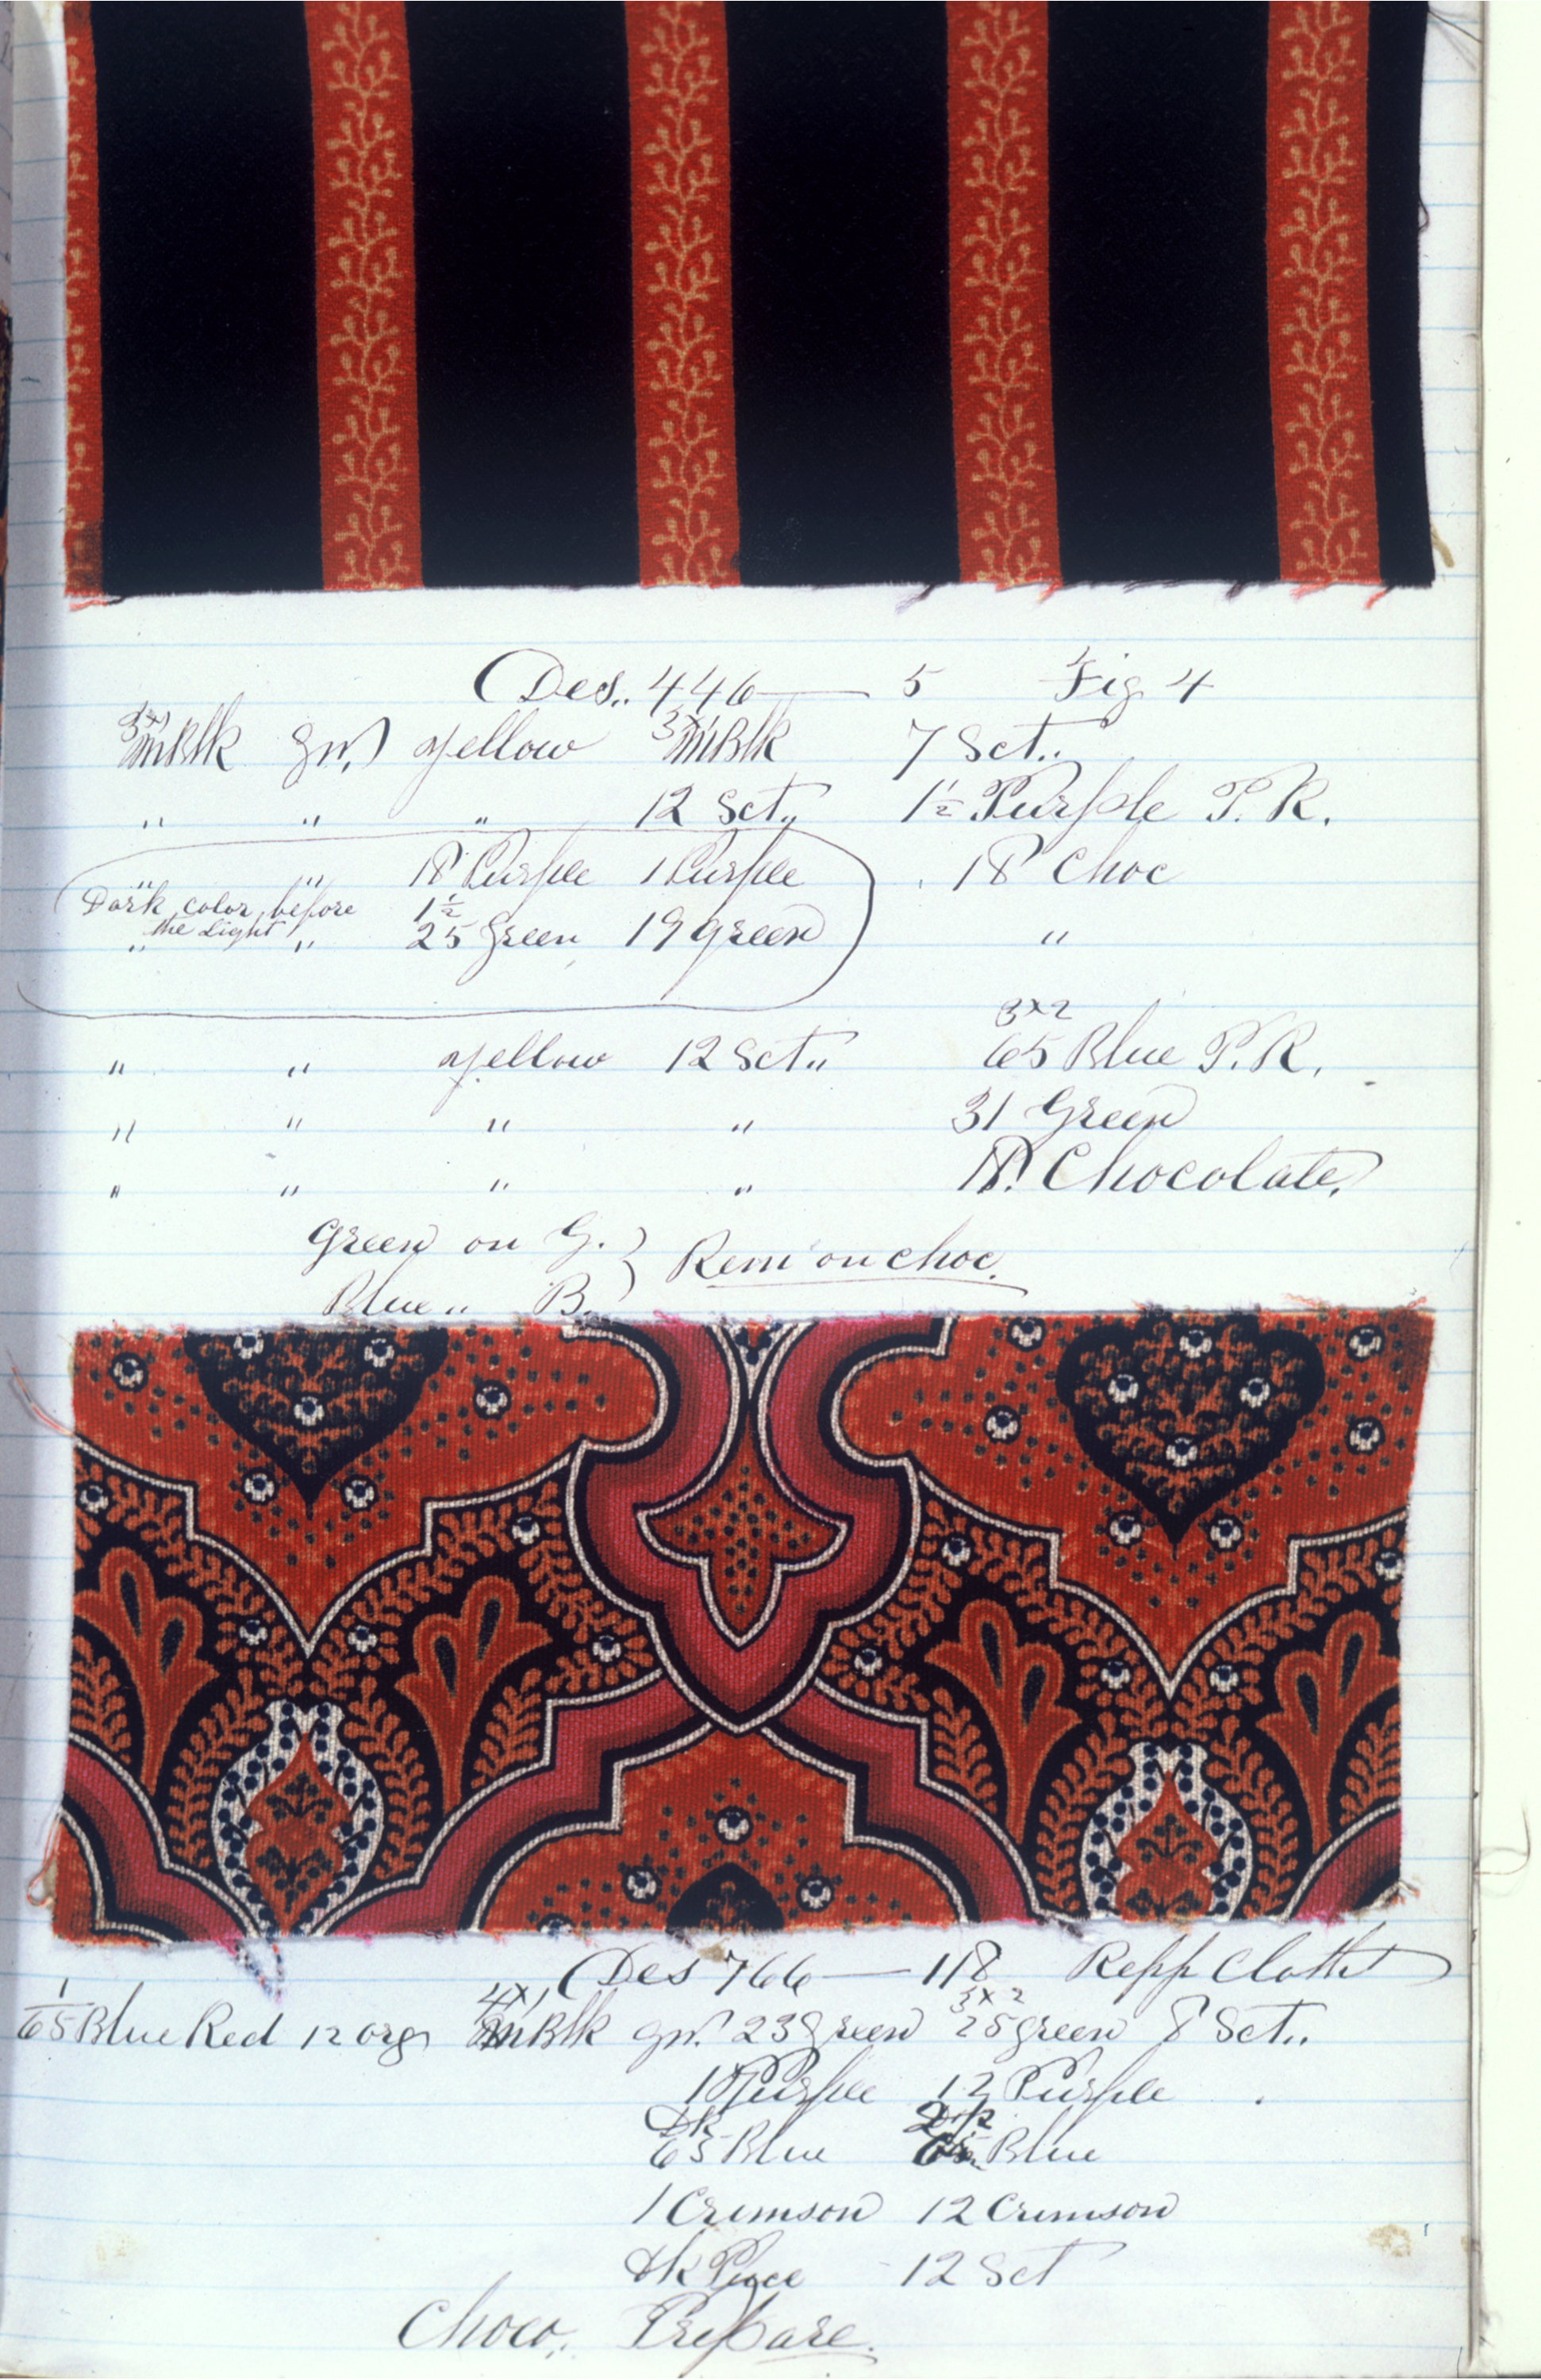 Des.. 446 — 5 Fig 4
3x1 mBlk gr. yellow 3x1 mBlk 7 Set..
" " " 12 Set.. 1½ Purple P.R.
" " 18 Purple 1 Purple 18 Choc
Dark color before 1½
the Light
" " 25 Green 19 Green "
3x2
" " yellow 12 Set.. 65 Blue P.R.
" " " " 31 Green
" " " " 18. Chocolate.
Green on G. } Rem on choc.
Blue " B.
Des 766 — 118 Repp Cloth
1 4x1 3x2
65 Blue Red 12 org mBlk gr. 23 Green 25 green 8 Set..
18 Purple 12 Purple
Dk
65 Blue 65 Blue
1 Crimson 12 Crimson
dk Puce - 12 Set
Choco. Prepare.